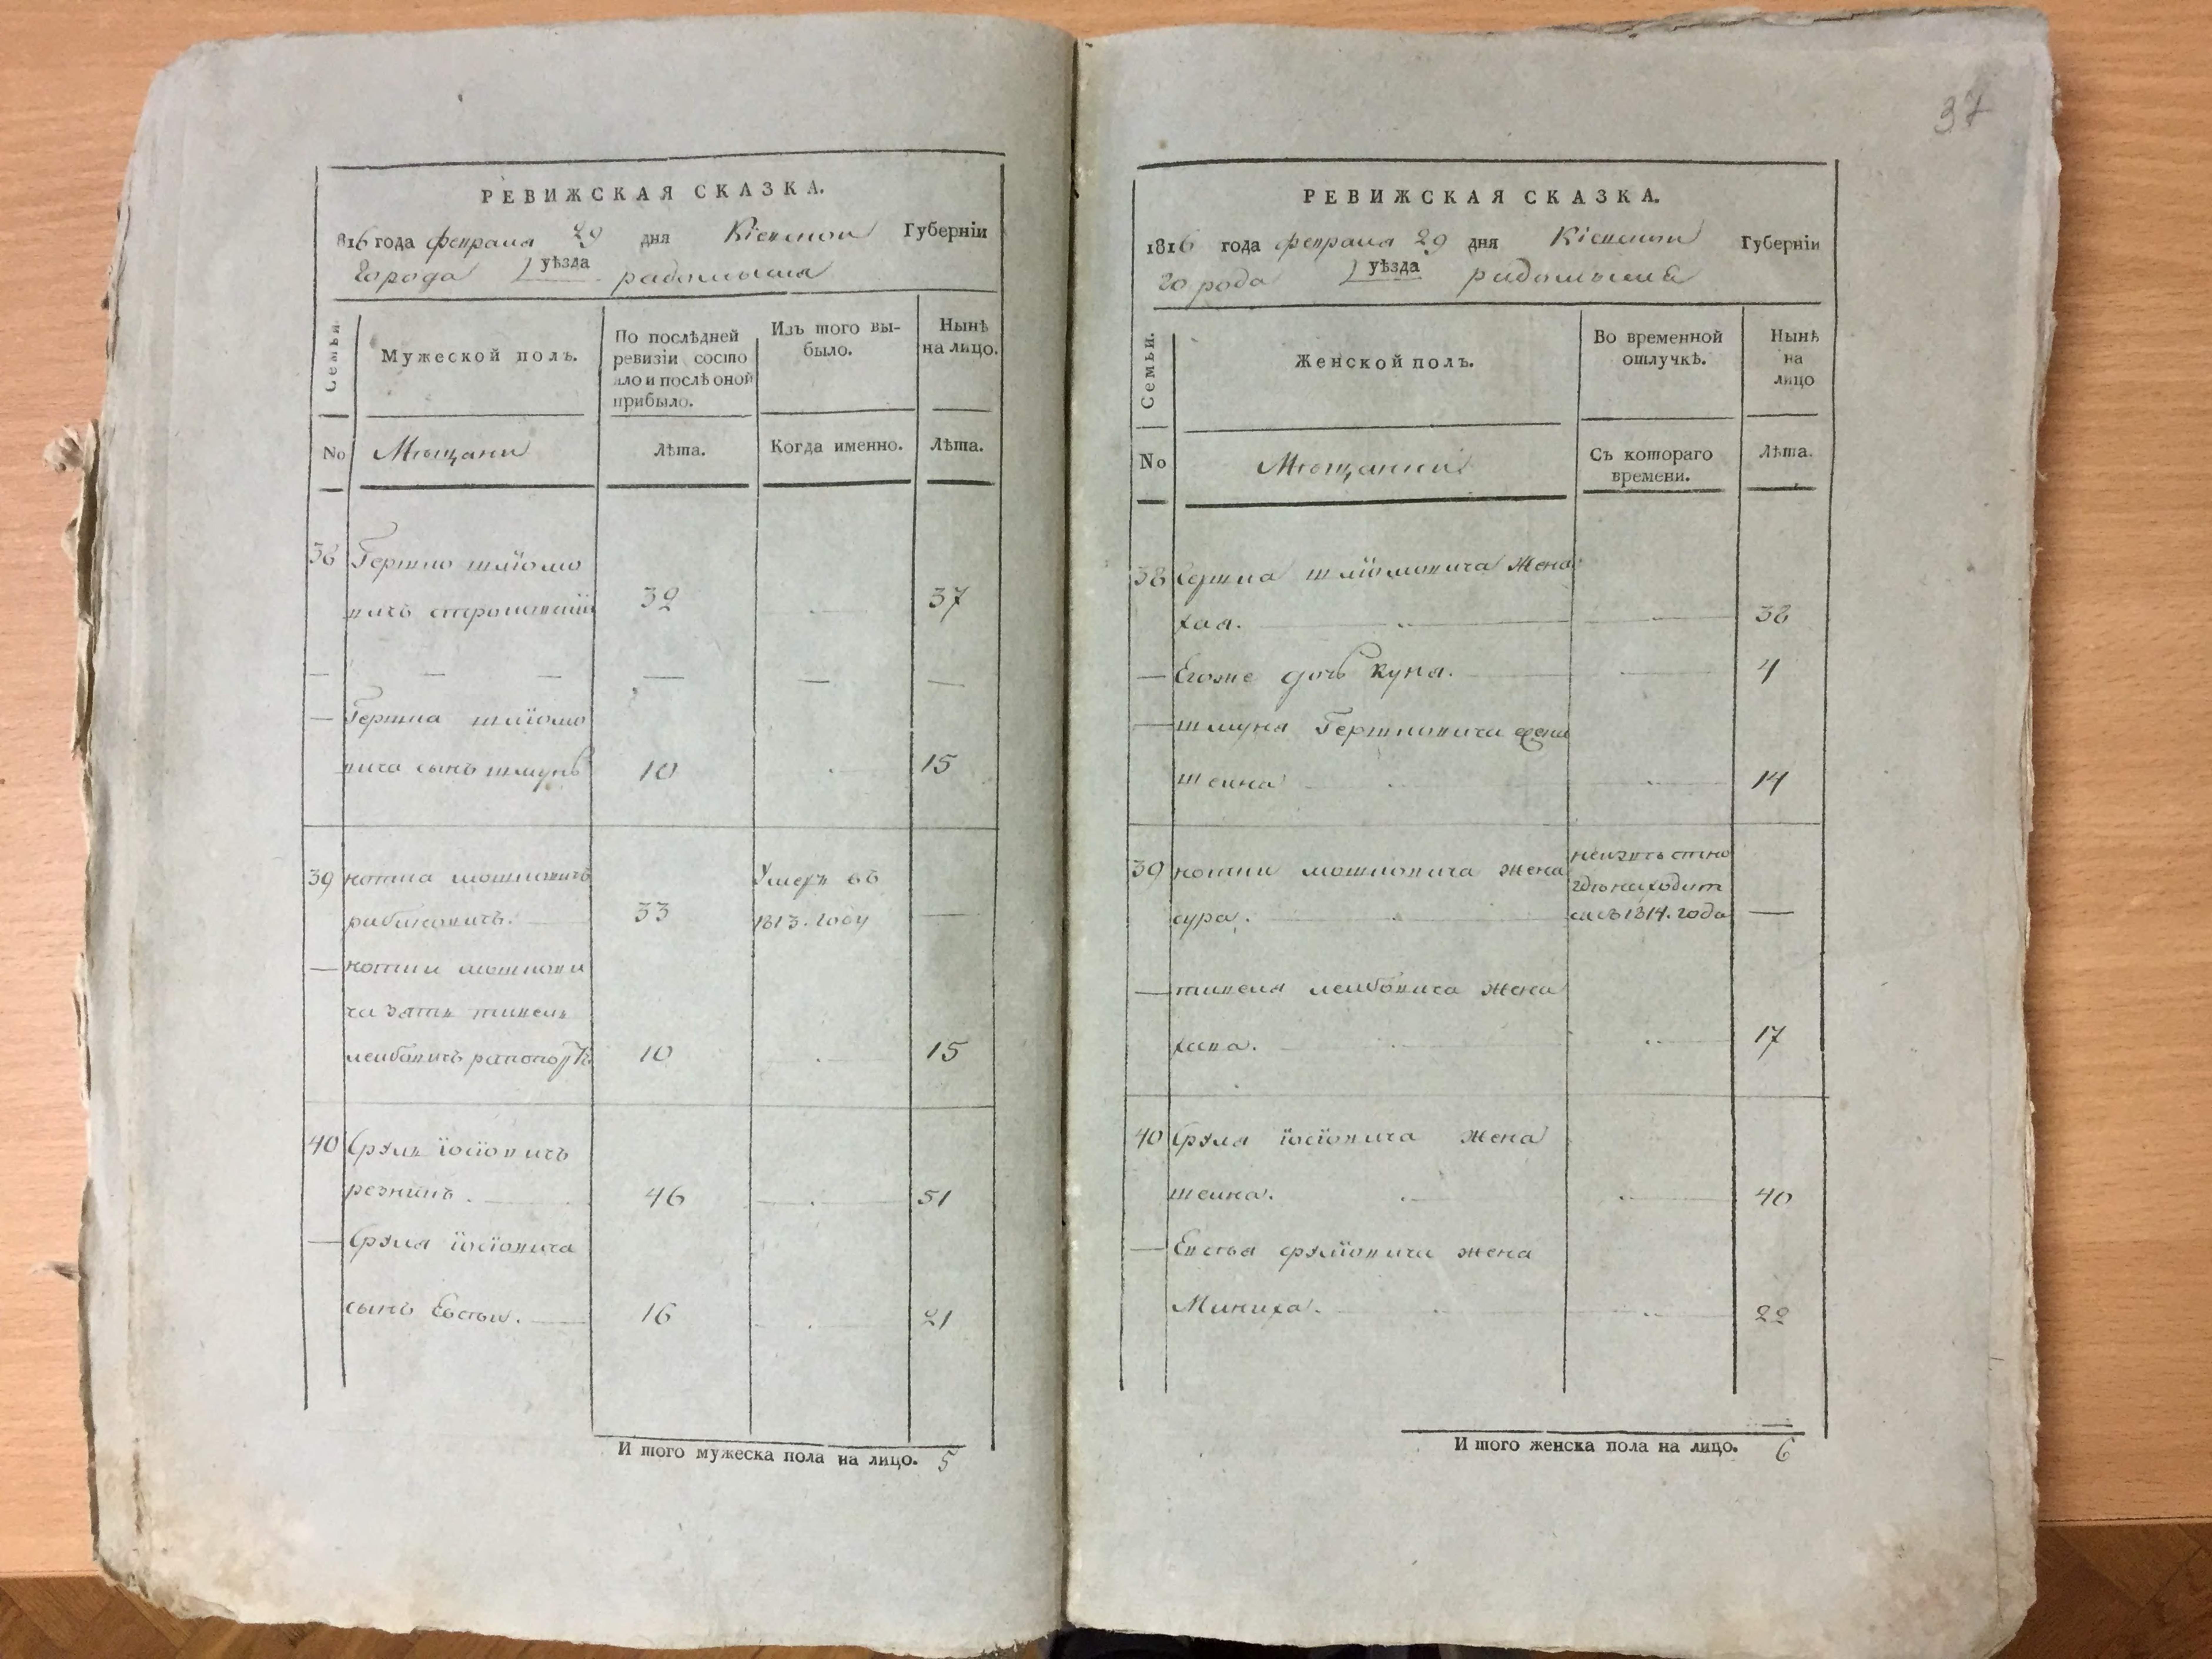 РЕВИЖСКАЯ СКАЗКА.
816 года февраля 29 дня Кіевской Губерніи
города уѣзда радомысля
Семьи. Мужеской полъ. По послѣдней ревизіи состояло и послѣ оной прибыло. Изъ того выбыло. Нынѣ на лицо.
No Мѣщани Лѣта. Когда именно. Лѣта.
38 Гершко шліомо
вичъ 32 37
— — — — — —
— Гершка шліомо
вича сынъ шмунь 10 15
39 мошковичъ Умеръ въ
33 1813. году —
— мошкови
ча зять
лейбовичъ рапопортъ 10 15
40 Срулъ іосіовичъ
резникъ. 46 51
— Сруля іосіовича
сынъ Евсъи. 16 21
И того мужеска пола на лицо. 5
37
РЕВИЖСКАЯ СКАЗКА.
1816 года февраля 29 дня Кіевской Губерніи
города уѣзда радомысля
Семьи. Женской полъ. Во временной отлучкѣ. Нынѣ на лицо
No Мѣщанки Съ котораго времени. Лѣта.
38 Гершка шліомовича жена
хая. 38
— Егоже дочь куня. 4
— шмуня Гершковича жена
шейна 14
39 мошковича жена неизвѣстно
гдѣ находит
сура. ся съ 1814. года —
— лейбовича жена
17
40 Сруля іосіовича жена
шейна. 40
— Евсъя сруліовича жена
Миниха. 22
И того женска пола на лицо. 6